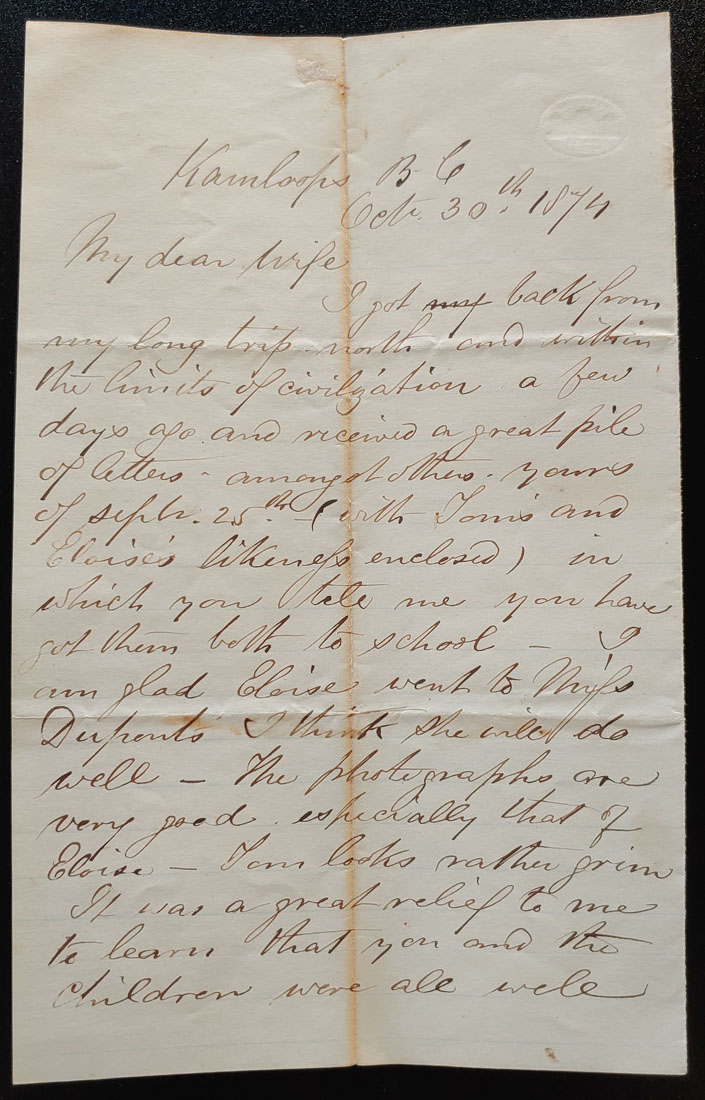 Kamloops B C
Oct. 30th. 1874
My dear Wife
I got my back from
my long trip north and within
the limits of civilization a few
days ago and received a great pile
of letters - amongst others - yours
of septr. 25th. - (with Tom's and
Eloise's likeness enclosed) in
which you tell me you have
got them both to school - I
am glad Eloise went to Miss
Duponts' I think she will do
well - The photographs are
very good. especially that of
Eloise - Tom looks rather grim
It was a great relief to me
to learn that you and the
children were all well